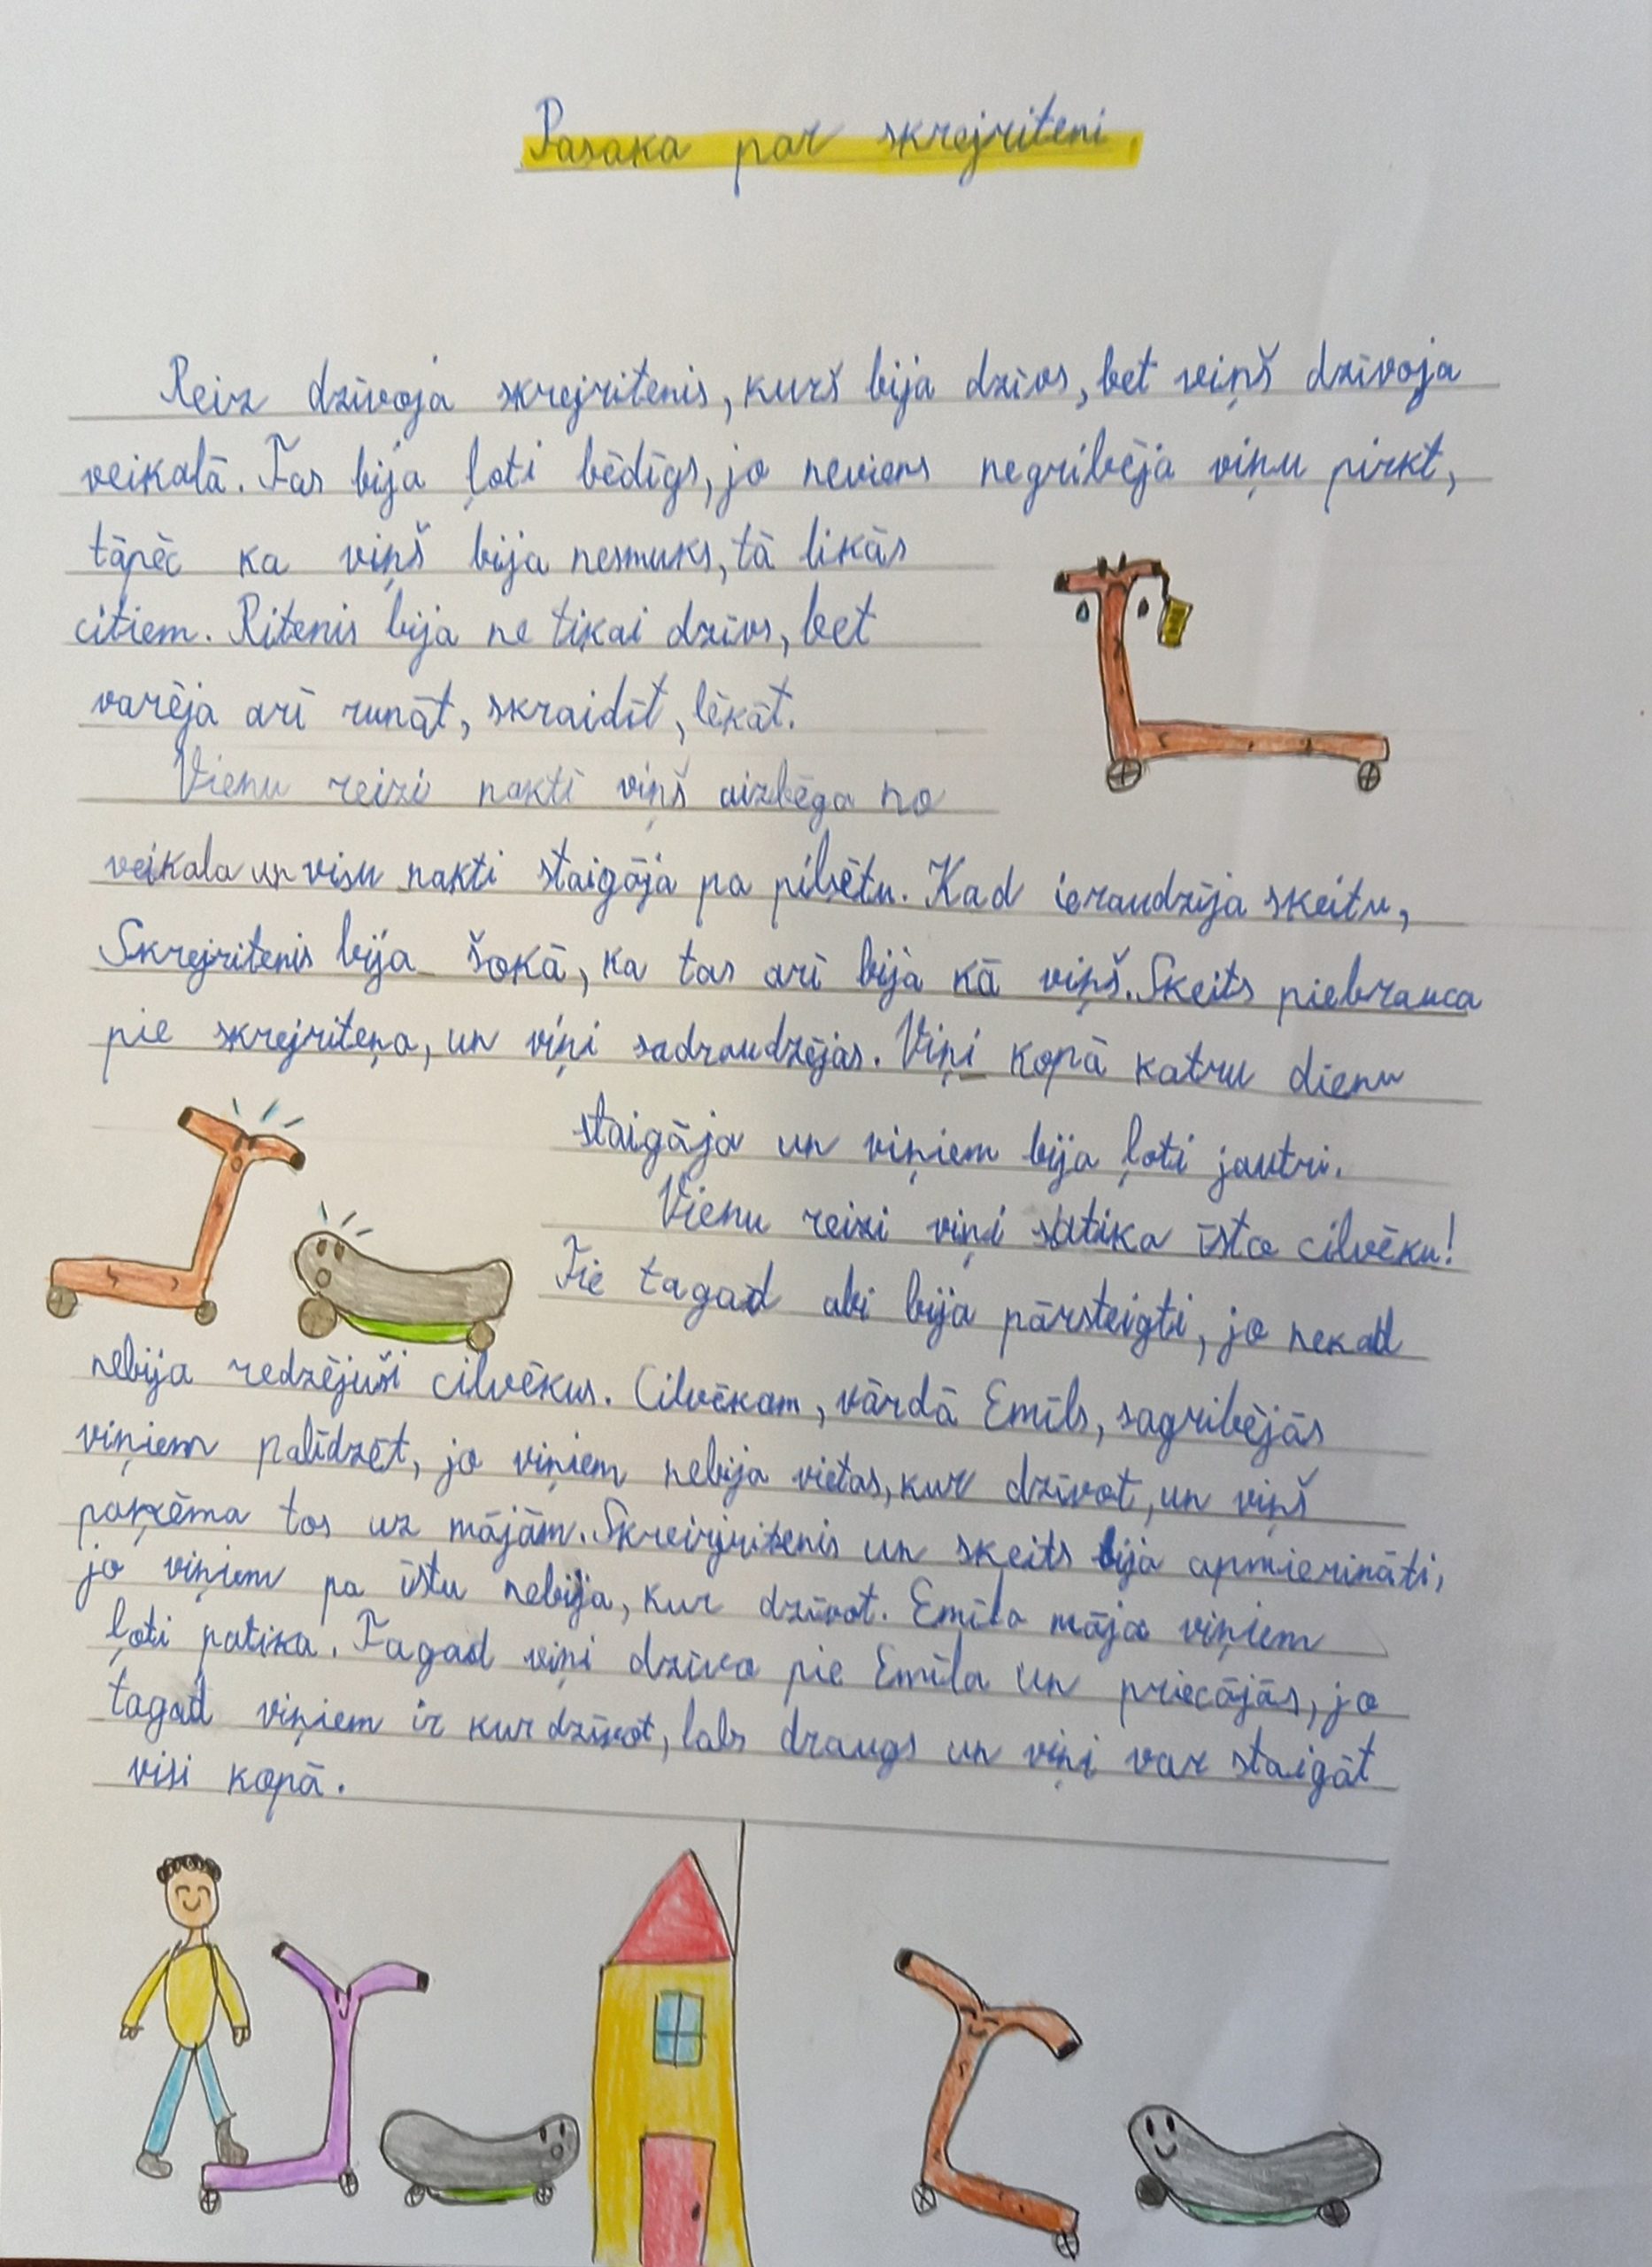 Pasaka par skrejriteni.
Reiz dzīvoja skrejritenis, kurš bija dzīvs, bet viņš dzīvoja
veikalā. Tas bija ļoti bēdīgs, jo neviens negribēja viņu pirkt,
tāpēc ka viņš bija nesmuks, tā likās
citiem. Ritenis bija ne tikai dzīvs, bet
varēja arī runāt, skraidīt, lēkāt.
Vienu reizi naktī viņš aizbēga no
veikala un visu nakti staigāja pa pilsētu. Kad ieraudzīja skeitu,
Skrejritenis bija šokā, ka tas arī bija kā viņš. Skeits piebrauca
pie skrejriteņa, un viņi sadraudzējās. Viņi kopā katru dienu
staigāja un viņiem bija ļoti jautri.
Vienu reizi viņi satika īsto cilvēku!
Tie tagad abi bija pārsteigti, jo nekad
nebija redzējuši cilvēkus. Cilvēkam, vārdā Emīls, sagribējās
viņiem palīdzēt, jo viņiem nebija vietas, kur dzīvot, un viņš
paņēma tos uz mājām. Skreijritenis un skeits bija apmierināti,
jo viņiem pa īstu nebija, kur dzīvot. Emīla māja viņiem
ļoti patika. Tagad viņi dzīvo pie Emīla un priecājās, jo
tagad viņiem ir kur dzīvot, labs draugs un viņi var staigāt
visi kopā.